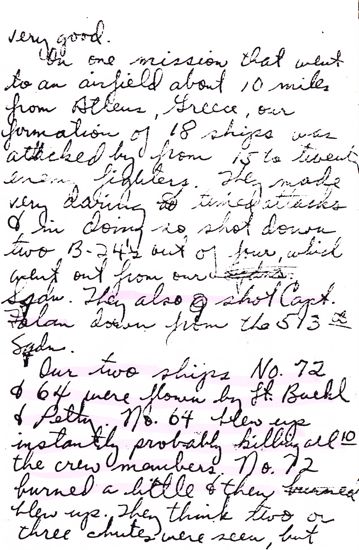 very good.
On one mission that went
to an airfield about 10 miles
from Athens, Greece, our
formation of 18 ships was
attacked by from 15 to twenty
enemy fighters. They made
very daring timed attacks
& in doing so shot down
two B-24's out of four, which
went out from our
Sqdn. They also shot Capt.
Folan down from the 513th
Sqdn.
Our two ships No. 72
& 64 were flown by Lt. Buehl
& Petty. No. 64 blew up
instantly probably killing all 10
the crew members. No. 72
burned a little & then burned
blew up. They think two or
three chutes were seen, but